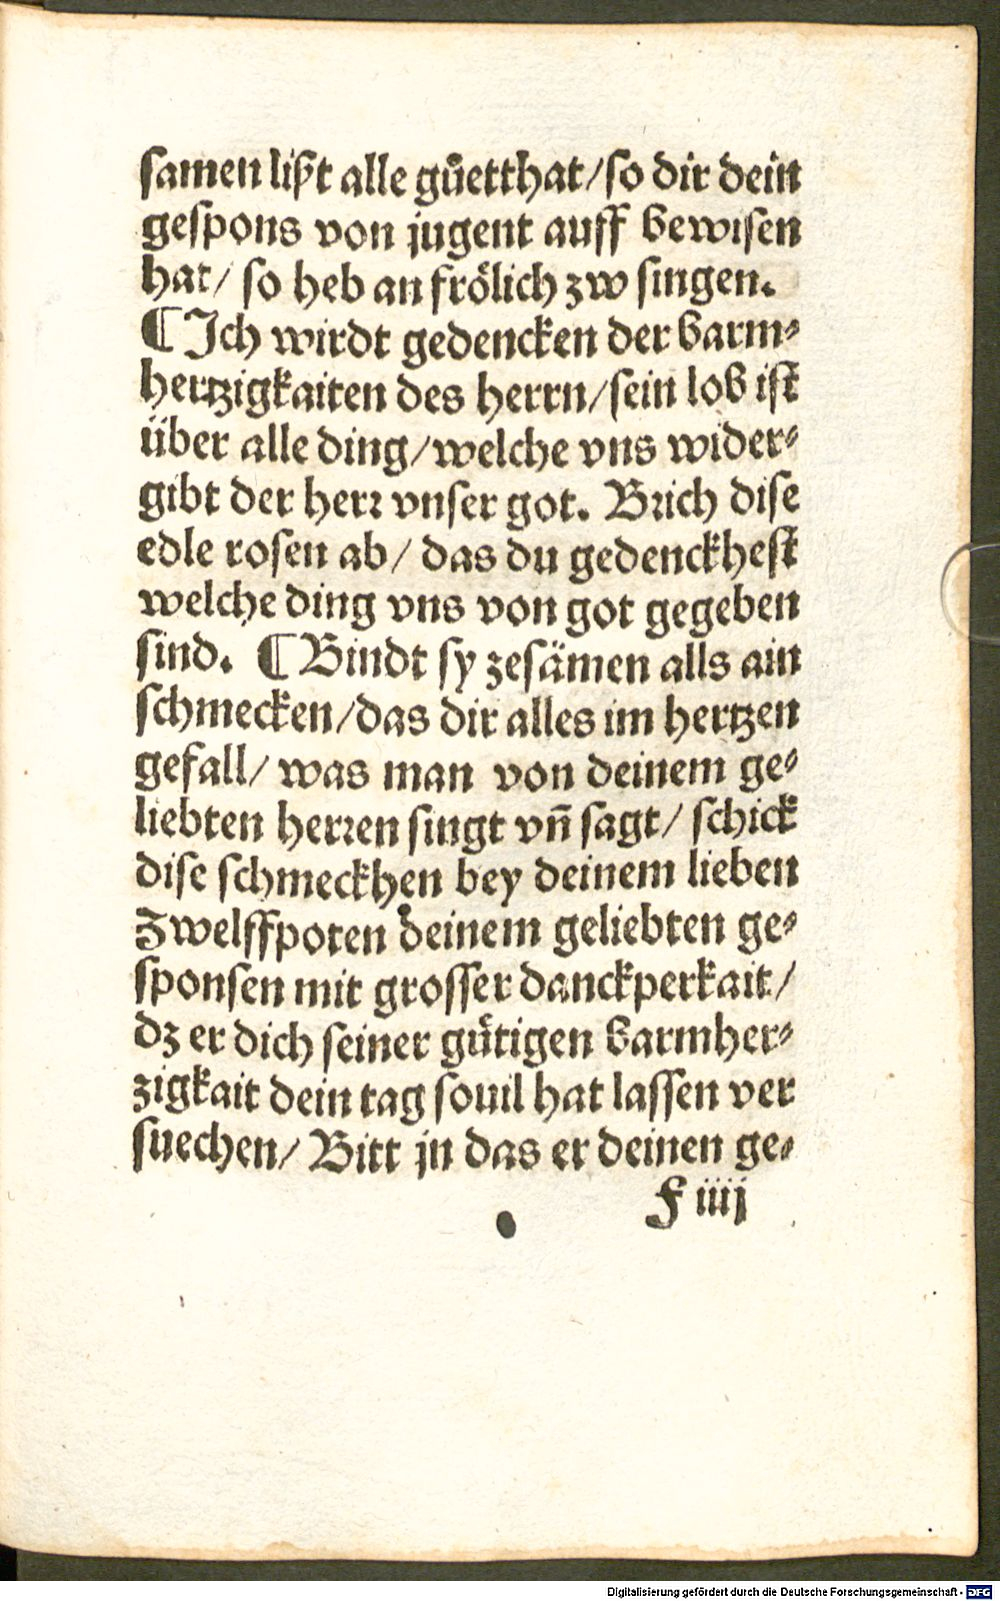 samen lißt alle gůetthat/so dir dein
gespons von jugent auff bewisen
hat/ so heb an frölich zw singen.
¶ Ich wirdt gedencken der barm⸗
hertzigkaiten des herrn/sein lob ist
über alle ding/welche vns wider⸗
gibt der herr vnser got. Brich dise
edle rosen ab/ das du gedenckhest
welche ding vns von got gegeben
sind. ¶ Bindt sy zesämen alls ain
schmecken/das dir alles im hertzen
gefall/ was man von deinem ge⸗
liebten herren singt vñ sagt/ schick
dise schmeckhen bey deinem lieben
Zwelffpoten deinem geliebten ge⸗
sponsen mit grosser danckperkait/
dz er dich seiner gütigen barmher⸗
zigkait dein tag souil hat lassen ver
suechen/ Bitt jn das er deinen ge⸗
F iiij
Digitalisierung gefördert durch die Deutsche Forschungsgemeinschaft - DFG